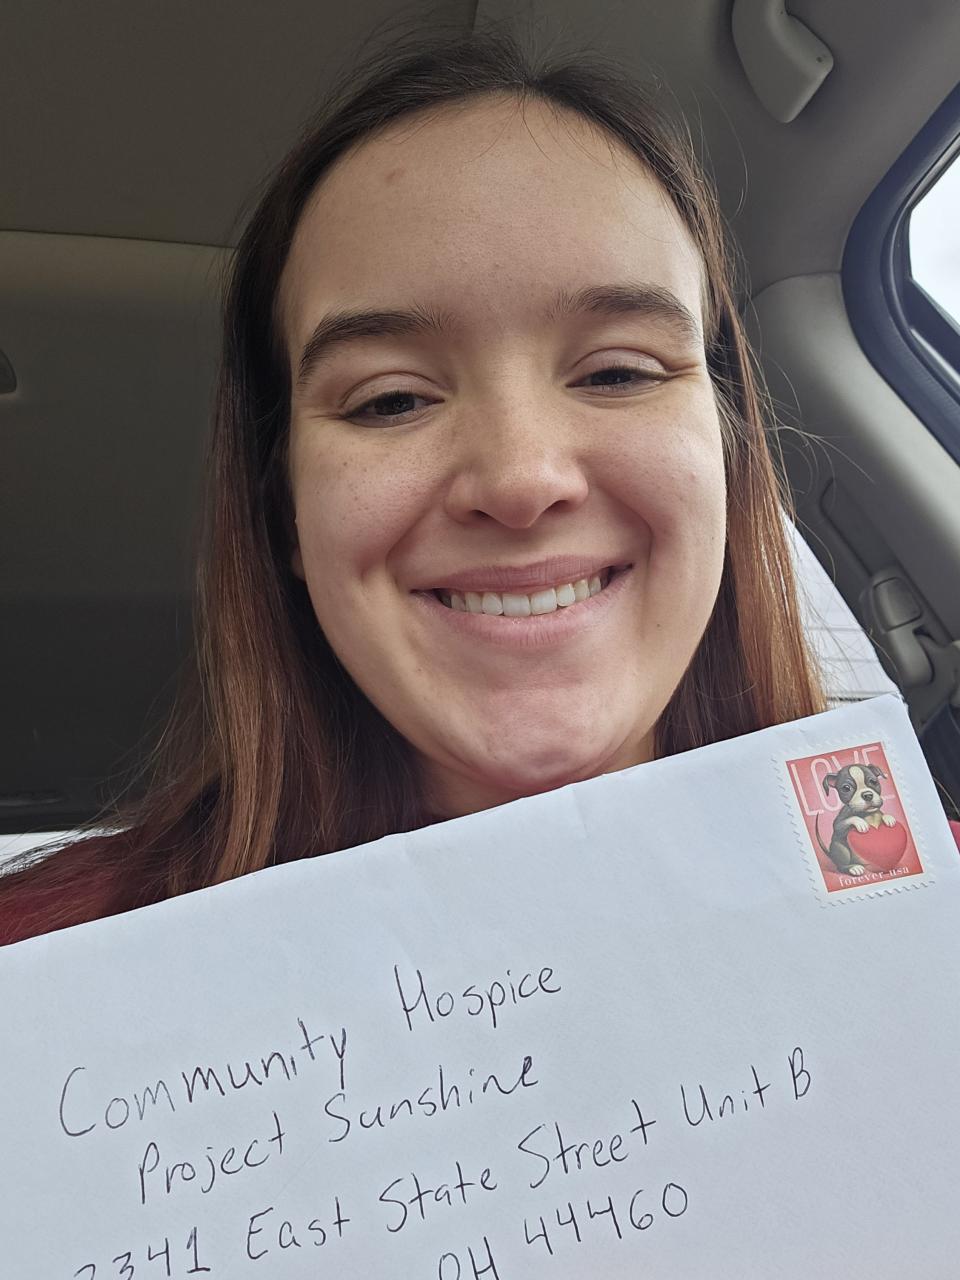 LOVE
forever usa
Community Hospice
Project Sunshine
2341 East State Street Unit B
OH 44460